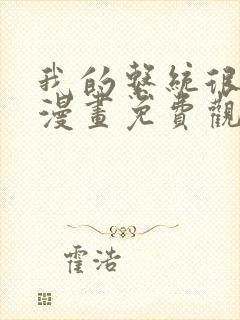 我的系統很
漫畫免費觀
霍浩